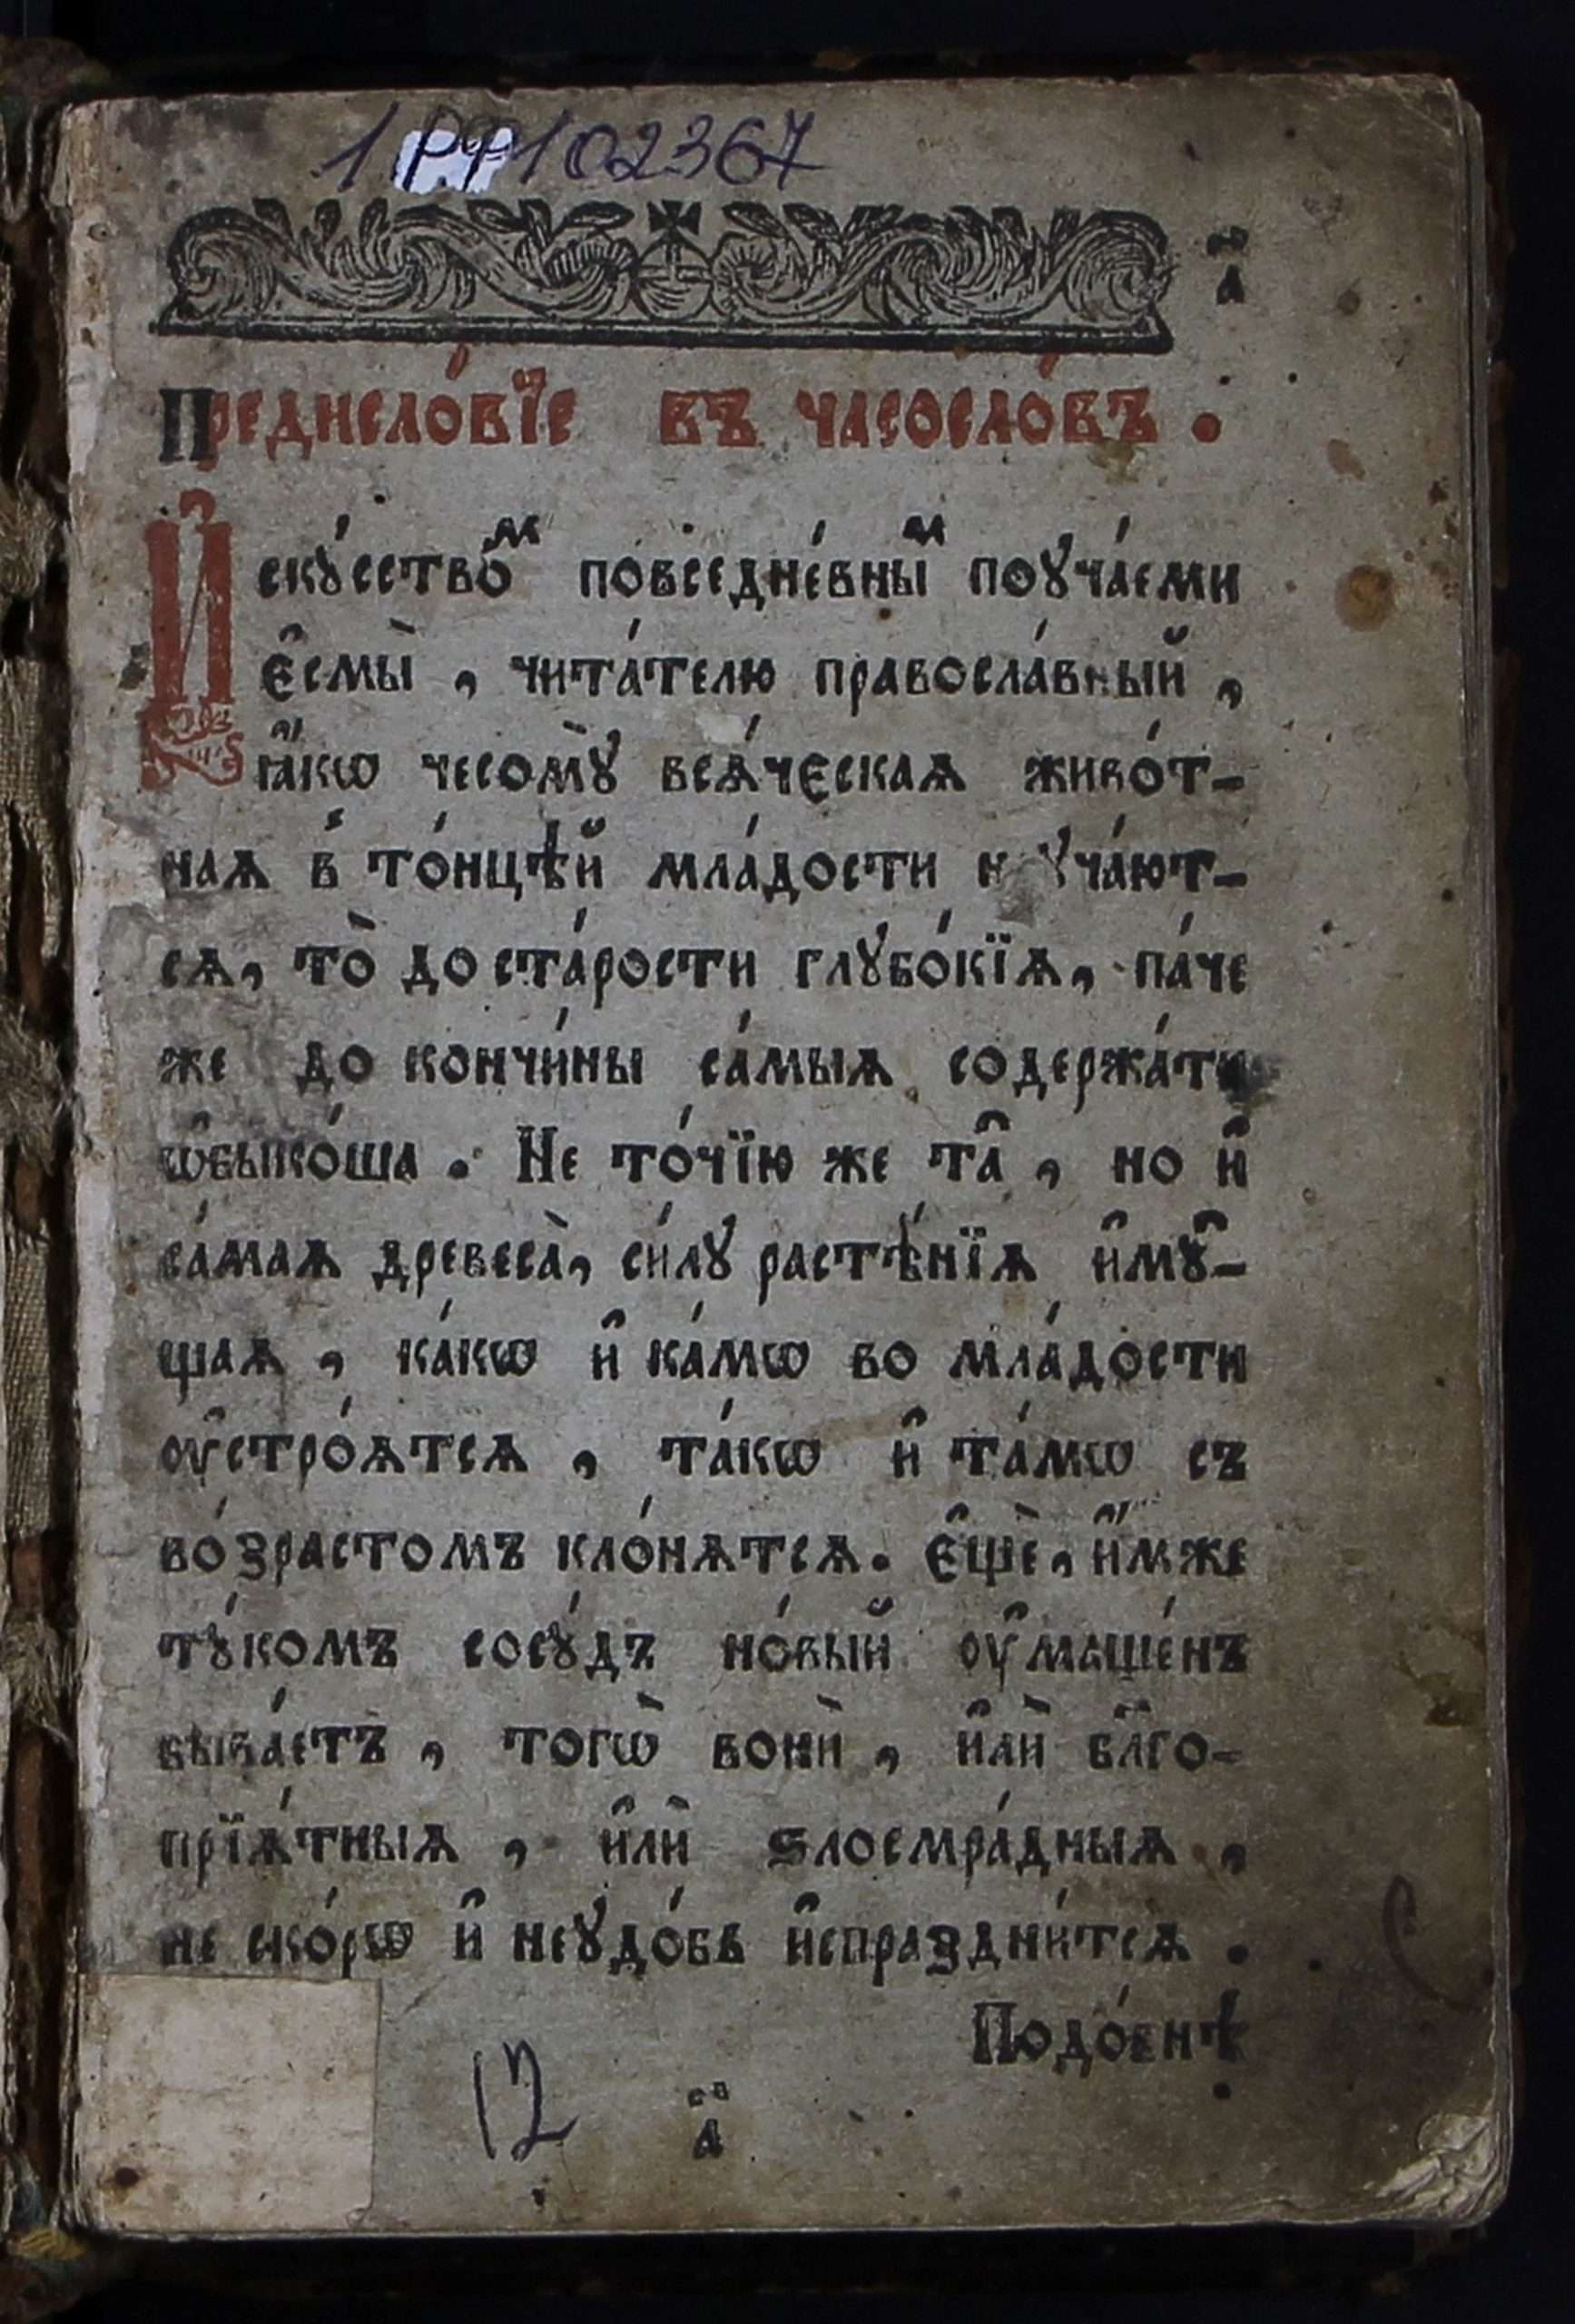 1 РФ102367
а҃
Предисло́вїе въ часосло́въ .
И҆скꙋ́сствоⷨ повседне́вныⷨ поꙋча́еми
є҆смы̀ , чита́телю правосла́вный ,
ꙗ҆́кѡ чесомꙋ̀ всѧ́ческаѧ живо́т-
наѧ в то́нцѣй мла́дости
сѧ, то̀ до ста́рости глꙋбо́кїѧ, па́че
же до кончи́ны са́мыѧ содержа́ти
ѡ҆быко́ша . Не то́чїю же та̑ , но и҆
са́маѧ древеса̀, си́лꙋ расте́нїѧ и҆мꙋ̑-
щаѧ , ка́кѡ и҆ ка́мѡ во мла́дости
ᲂу҆стро́ѧтсѧ , та́кѡ и҆ та́мѡ съ
во́зрастомъ кло́нѧтсѧ. Є҆щѐ, и҆́мже
тꙋ́комъ сосꙋ́дъ но́вый ᲂу҆маще́нъ
быва́етъ , тогѡ̀ вони̑ , и҆лѝ бл҃го-
прїѧ́тныѧ , и҆лѝ ѕлосмра́дныѧ ,
не ско́рѡ и҆ неꙋдо́бь и҆спраздни́тсѧ .
Подо́бнѣ
12 а҃